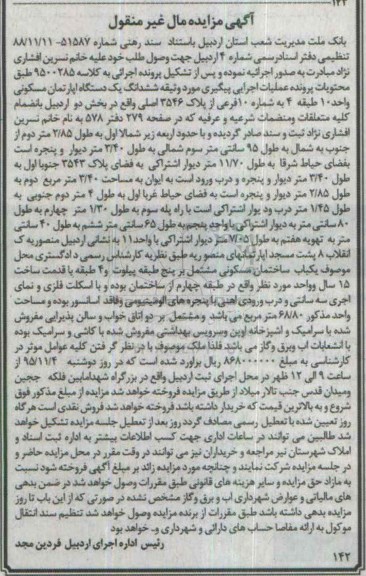 ۱۲۲
آگهی مزایده مال غیر منقول
بانک ملت مدیریت شعب استان اردبیل باستناد سند رهنی شماره ۵۱۵۸۷-۸۸/۱۱/۱۱
تنظیمی دفتر اسنادرسمی شماره ۴ اردبیل جهت وصول طلب خود علیه خانم نسرین افشاری
نژاد مبادرت به صدور اجرائیه نموده و پس از تشکیل پرونده اجرائی به کلاسه ۹۵۰۰۲۸۵ طبق
محتویات پرونده عملیات اجرایی پیگیری مورد وثیقه ششدانگ یک دستگاه اپارتمان مسکونی
واحد۱۰ طبقه ۴ به شماره ۱۰فرعی از پلاک ۳۵۴۶ اصلی واقع در بخش دو اردبیل بانضمام
کلیه متعلقات ومنضمات شرعیه و عرفیه که در صفحه ۲۷۹ دفتر ۵۷۸ به نام خانم نسرین
افشاری نژاد ثبت و سند صادر گردیده و با حدود اربعه زیر شمالا اول به طول ۲/۸۵ متر دوم از
جنوب به شمال به طول ۹۵ سانتی متر سوم شمالی به طول ۳/۴۰ متر دیوار و پنجره است
بفضای حیاط شرقا به طول ۱۱/۷۰ متر دیوار اشتراکی به فضای پلاک ۳۵۴۳ جنوبا اول به
طول ۳/۴۰ متر دیوار و پنجره و درب ورود است به ایوان به مساحت ۳/۴۰ متر مربع دوم به
طول ۲/۸۵ متر دیوار و پنجره است به فضای حیاط غربا اول به طول ۴ متر دوم جنوبی به
طول ۱/۴۵ متر درب ود یوار اشتراکی است با راه پله سوم به طول ۱/۳۰ متر چهارم به طول
۸۰ سانتی متر به دیوار اشتراکی با واحد پنجم به طول ۶۵ سانتی متر ششم به طول ۴۰ سانتی
متر به تهویه هفتم به طول ۷/۰۵ متر دیوار اشتراکی با واحد۱۱ به نشانی اردبیل منصوریه ک
انقلاب ۸ پشت مسجد اپارتمانهای منصوریه طبق نظریه کارشناس رسمی دادگستری محل
موصوف یکباب ساختمان مسکونی مشتمل بر پنج طبقه پیلوت و۴ طبقه با قدمت ساخت
۱۵ سال وواحد مورد نظر واقع در طبقه چهارم از ساختمان بوده و با اسکلت فلزی و نمای
اجری سه سانتی و درب ورودی اهنی با پنجره های الومینیومی وفاقد اسانسور بوده و مساحت
واحد مذکور ۶۸/۸۰ متر مربع می باشد و مشتمل بر دو اتاق خواب و سالن پذیرایی مفروش
شده با سرامیک و اشپزخانه اوپن وسرویس بهداشتی مفروش شده با کاشی و سرامیک بوده
با انشعابات اب وبرق وگاز می باشد فلذا ملک موصوف با در نظر گر فتن کلیه عوامل موثر در
کارشناسی به مبلغ ۸۶۸۰۰۰۰۰۰ ریال براورد شده است که در روز دوشنبه ۹۵/۱۱/۴ از
ساعت ۹ الی ۱۲ ظهر در محل اجرای ثبت اردبیل واقع در بزرگراه شهدامابین فلکه ججین
ومیدان قدس جنب تالار میلاد از طریق مزایده فروخته خواهد شد مزایده از مبلغ مذکور فوق
شروع و به بالاترین قیمت که خریدار داشته باشد فروخته خواهد شد فروش نقدی است هرگاه
روز تعیین شده با تعطیل رسمی مصادف گردد روز بعد از تعطیل جلسه مزایده تشکیل خواهد
شد طالبین می توانند در ساعات اداری جهت کسب اطلاعات بیشتر به اداره ثبت اسناد و
املاک شهرستان نیر مراجعه و خریداران نیز می توانند در وقت مقرر در محل مزایده حاضر و
در جلسه مزایده شرکت نمایند و چنانچه مورد مزایده زائد بر مبلغ آگهی فروخته شود نسبت
به مازاد حق مزایده و سایر هزینه های قانونی طبق مقررات وصول خواهد شد در ضمن بدهی
های مالیاتی و عوارض شهرداری اب و برق وگاز مشخص نشده در صورتی که از این باب تا روز
مزایده بدهی داشته باشد طبق مقررات از برنده مزایده وصول خواهد شد تنظیم سند انتقال
موکول به ارائه مفاصا حساب های دارائی و شهرداری و.. خواهد بود
رئیس اداره اجرای اردبیل فردین مجد
۱۴۲